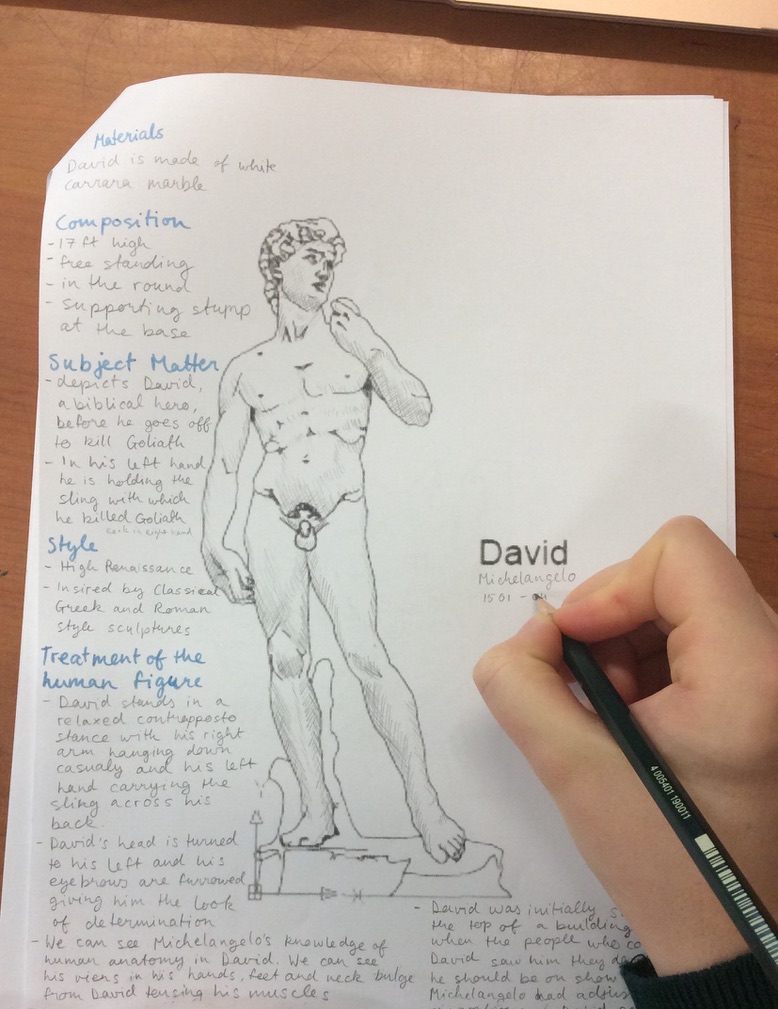 Materials
David is made of white
Carrara marble
Composition
- 17 ft high
- free standing
- in the round
- supporting stump
at the base
Subject Matter
- depicts David,
a biblical hero,
before he goes off
to kill Goliath
- In his left hand
he is holding the
sling with which
he killed Goliath
Style
- High Renaissance
- Insired by Classical
Greek and Roman
style sculptures
Treatment of the
human figure
- David stands in a
relaxed contrapposto
stance with his right
arm hanging down
casualy and his left
hand carrying the
sling across his
back.
- David's head is turned
to his left and his
eyebrows are furrowed
giving him the look
of determination
- We can see Michelangelo's knowledge of
human anatomy in David. We can see
his viens in his hands, feet and neck bulge
from David tensing his muscles
David
Michelangelo
1501 -
- David was initially
the top of a building
when the people who
David saw him they
he should be on show
Michelangelo had
4 005401 190011